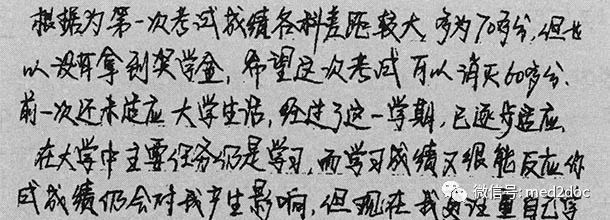 根据为第一次考试成绩各科差距较大,多为70多分,但也
以没有拿到奖学金,希望这次考试可以消灭60多分.
前一次还未适应大学生活,经过了这一学期,已逐步适应
在大学中主要任务仍是学习,而学习成绩又很能反应你
成绩仍会对我产生影响,但现在我更注重自己
微信号: med2doc